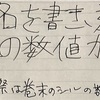 名を書き
の数値が
際は巻末のシールの数